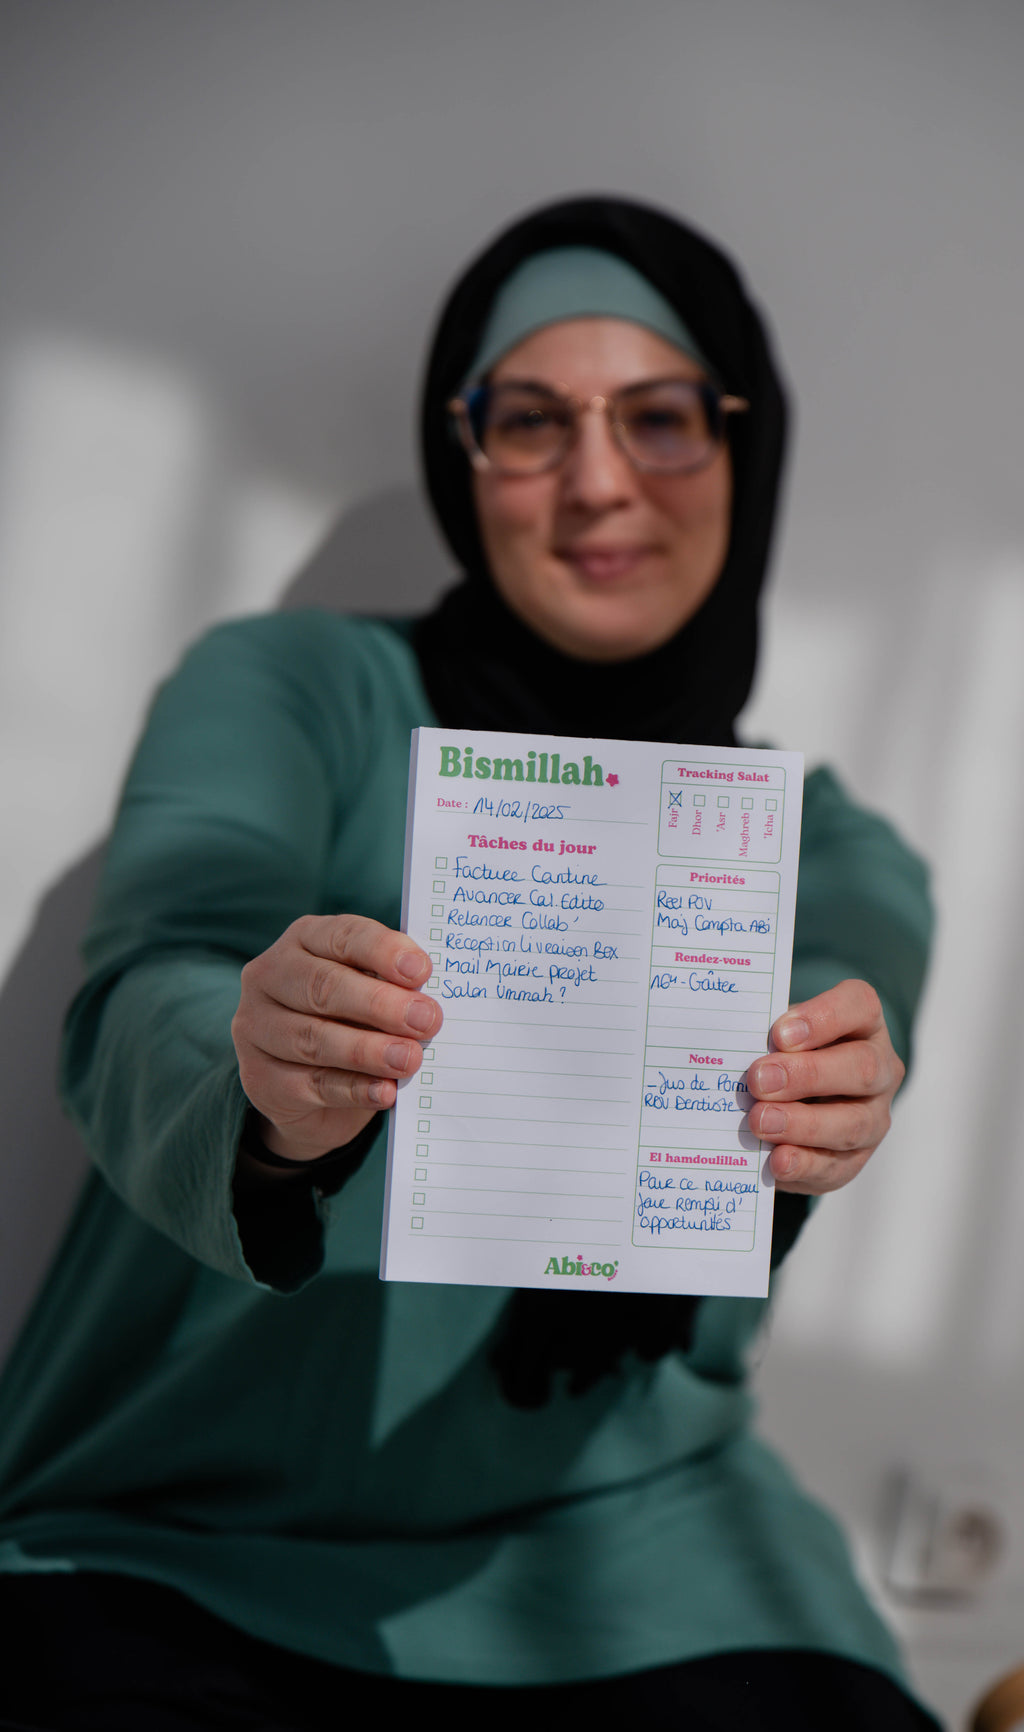 Bismillah
Date : 14/02/2025
Tâches du jour
Facture Cantine
Avancer Cal. Edito
Relancer Collab'
Réception Livraison Box
Mail Mairie projet
Salon Ummah ?
Tracking Salat
Fajr
Dhor
'Asr
Maghreb
'Icha
Priorités
Reel POV
Maj Compta ABi
Rendez-vous
16H - Goûter
Notes
- Jus de Pom
RDV Dentiste
El hamdoulillah
Pour ce nouveau
jour rempli d'
opportunités
Abi&co